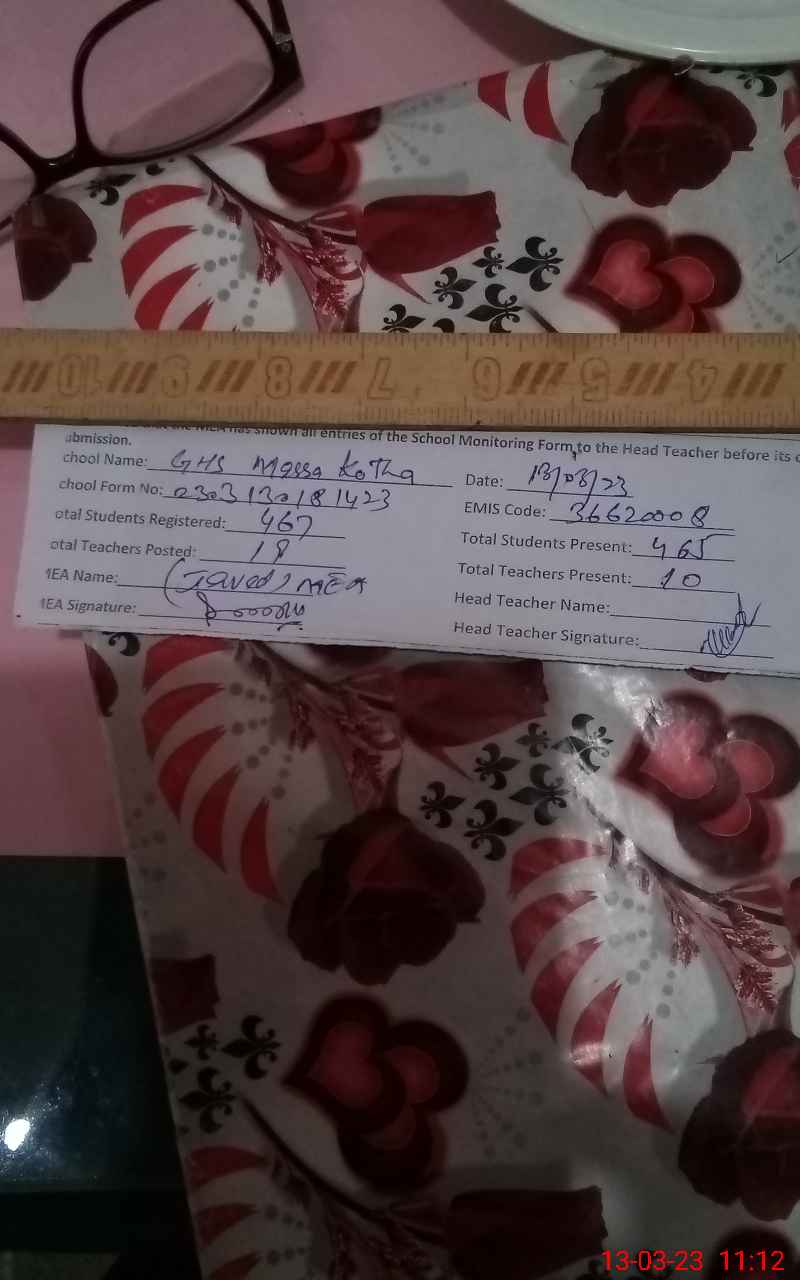 ubmission. the MEA has shown all entries of the School Monitoring Form to the Head Teacher before its
chool Name: GHS Massa Kotha
Date: 13/03/23
chool Form No: 0303130181423
EMIS Code: 36620008
otal Students Registered: 467
Total Students Present: 465
otal Teachers Posted: 18
Total Teachers Present: 10
MEA Name: (Javed) MEA
Head Teacher Name:
MEA Signature:
Head Teacher Signature:
10 9 8 7 6 5 4
13-03-23 11:12